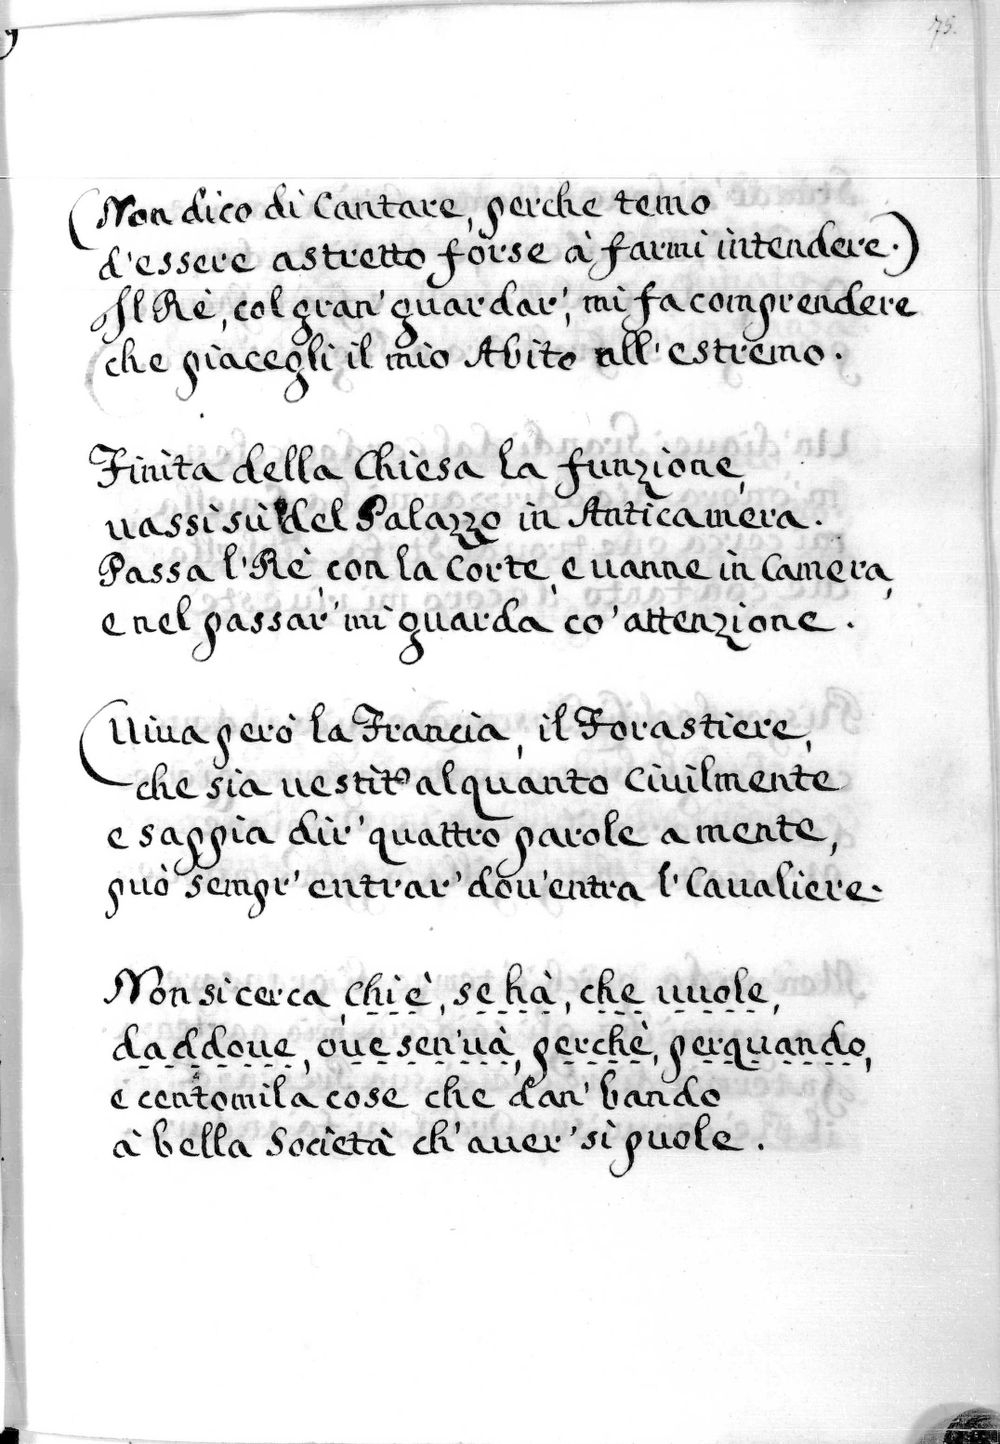 75.
(Non dico di Cantare, perche temo
d'essere astretto forse à farmi intendere.)
Il Rè, col gran' guardar', mi fa comprendere
che piacegli il mio Abito all'estremo.
Finita della Chiesa la funzione,
uassi sù del Palazzo in Anticamera.
Passa l'Rè con la Corte, e uanne in Camera,
e nel passar' mi guarda co' attenzione.
Uiua però la Francia, il Forastiere,
che sia uestito alquanto Ciuilmente
e sappia dir' quattro parole a mente,
può sempr' entrar' dou'entra l'Caualiere.
Non si cerca, chi è, se hà, che uuole,
daddoue, oue sen'uà, perchè, perquando,
e centomila cose che dan' bando
à bella Società ch'auer' si puole.